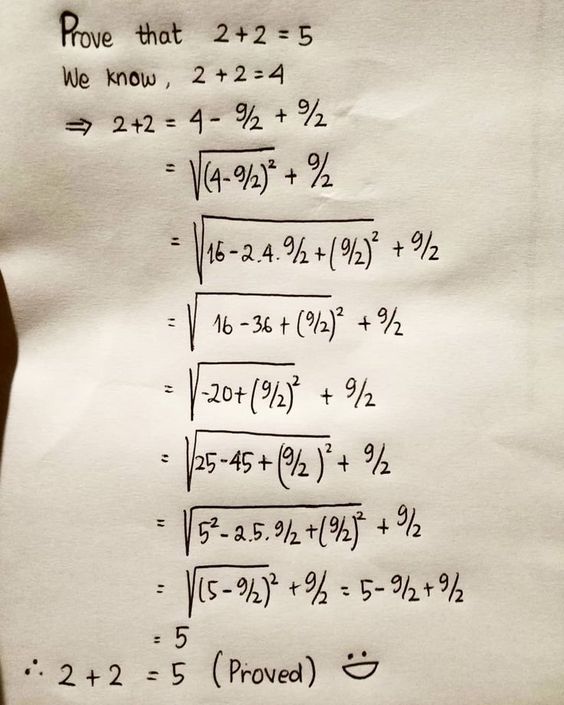 Prove that 2 + 2 = 5
We know, 2 + 2 = 4
⇒ 2+2 = 4 - 9/2 + 9/2
= √(4-9/2)² + 9/2
= √16-2.4.9/2+(9/2)² + 9/2
= √16-36+(9/2)² + 9/2
= √-20+(9/2)² + 9/2
= √25-45+(9/2)² + 9/2
= √5²-2.5.9/2+(9/2)² + 9/2
= √(5-9/2)² + 9/2 = 5-9/2+9/2
= 5
∴ 2 + 2 = 5 (Proved) ☺